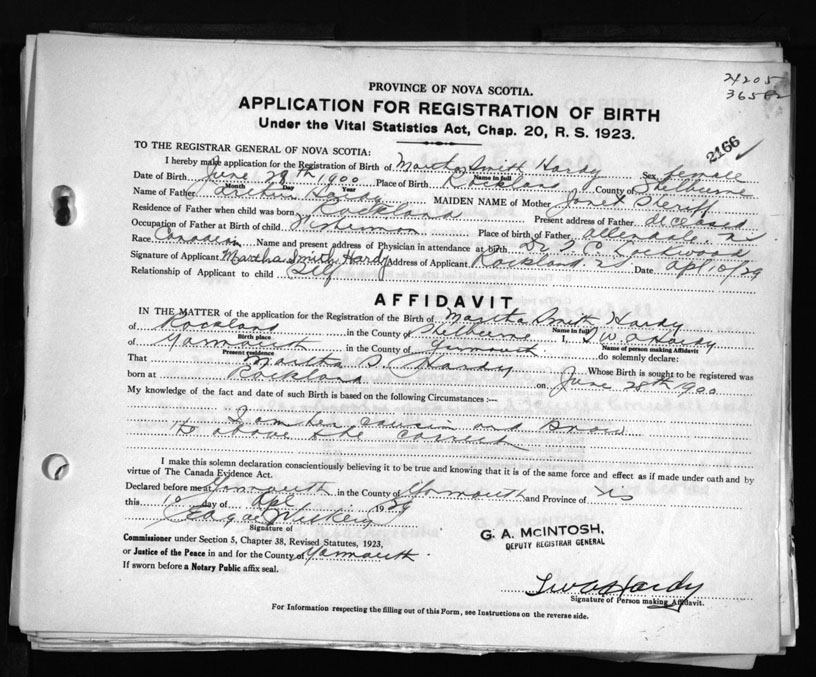 24205
36582
PROVINCE OF NOVA SCOTIA.
APPLICATION FOR REGISTRATION OF BIRTH
Under the Vital Statistics Act, Chap. 20, R. S. 1923.
2166
TO THE REGISTRAR GENERAL OF NOVA SCOTIA:
I hereby make application for the Registration of Birth of Martha Smith Hardy Sex female
Name in full
Date of Birth June 28th 1900 Place of Birth Rockland County of Shelburne
Month Day Year
Name of Father Hardy MAIDEN NAME of Mother Janet
Residence of Father when child was born Rockland Present address of Father deceased
Occupation of Father at Birth of child Fisherman Place of birth of Father Allendale. NS
Race Canadian Name and present address of Physician in attendance at birth Dr Lockwood
Signature of Applicant Martha Smith Hardy Address of Applicant Rockland NS Date Apl 10/29
Relationship of Applicant to child Self
AFFIDAVIT
IN THE MATTER of the application for the Registration of the Birth of Martha Smith Hardy
Name in full
of Rockland in the County of Shelburne I, Hardy
Birth place Name of person making Affidavit
of Yarmouth in the County of Yarmouth do solemnly declare:
Present residence
That Martha S. Hardy Whose Birth is sought to be registered was
born at Rockland on June 28th 1900
My knowledge of the fact and date of such Birth is based on the following Circumstances :—
I am her cousin and know
the above correct
I make this solemn declaration conscientiously believing it to be true and knowing that it is of the same force and effect as if made under oath and by
virtue of The Canada Evidence Act.
Declared before me at Yarmouth in the County of Yarmouth and Province of NS
this 10 day of Apl 1929
Signature of
Commissioner under Section 5, Chapter 38, Revised Statutes, 1923,
or Justice of the Peace in and for the County of Yarmouth.
If sworn before a Notary Public affix seal.
G. A. McINTOSH,
DEPUTY REGISTRAR GENERAL
Hardy
Signature of Person making Affidavit.
For Information respecting the filling out of this Form, see Instructions on the reverse side.